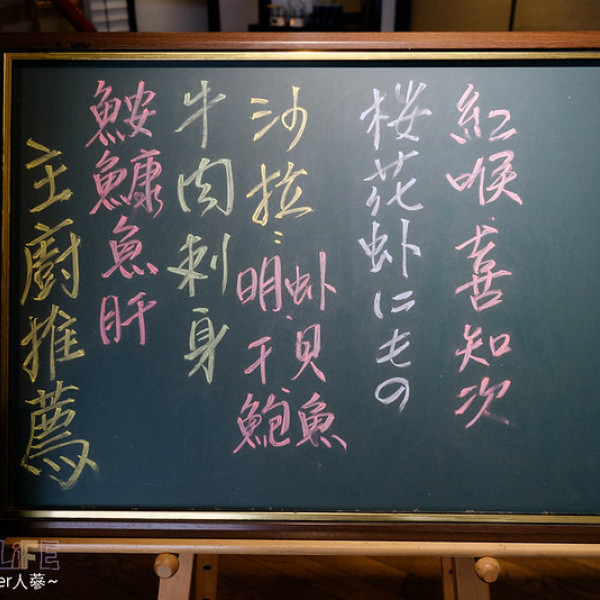 主廚推薦
鮟鱇魚肝
牛肉刺身
沙拉：
明虾、
干貝、
鮑魚
桜花虾にもの
紅喉、喜知次
LiFE
er人蔘~